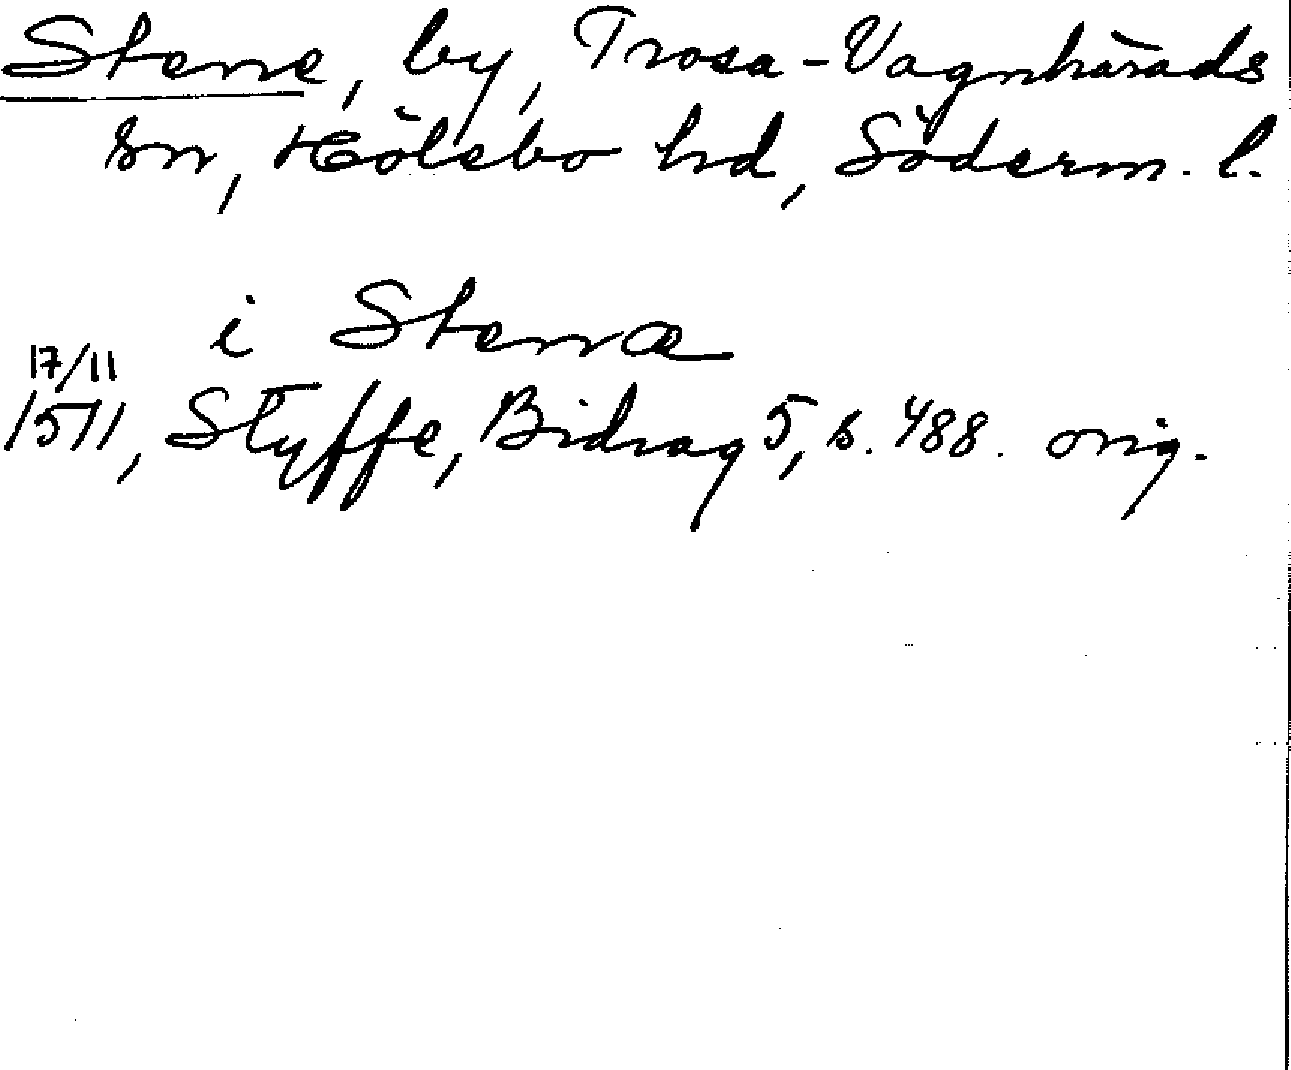 Stene, by, Trosa-Vagnhärads
sn, Hölebo hd, Söderm. l.
i Stenæ
17/11
1511, Styffe, Bidrag 5, s. 488. orig.